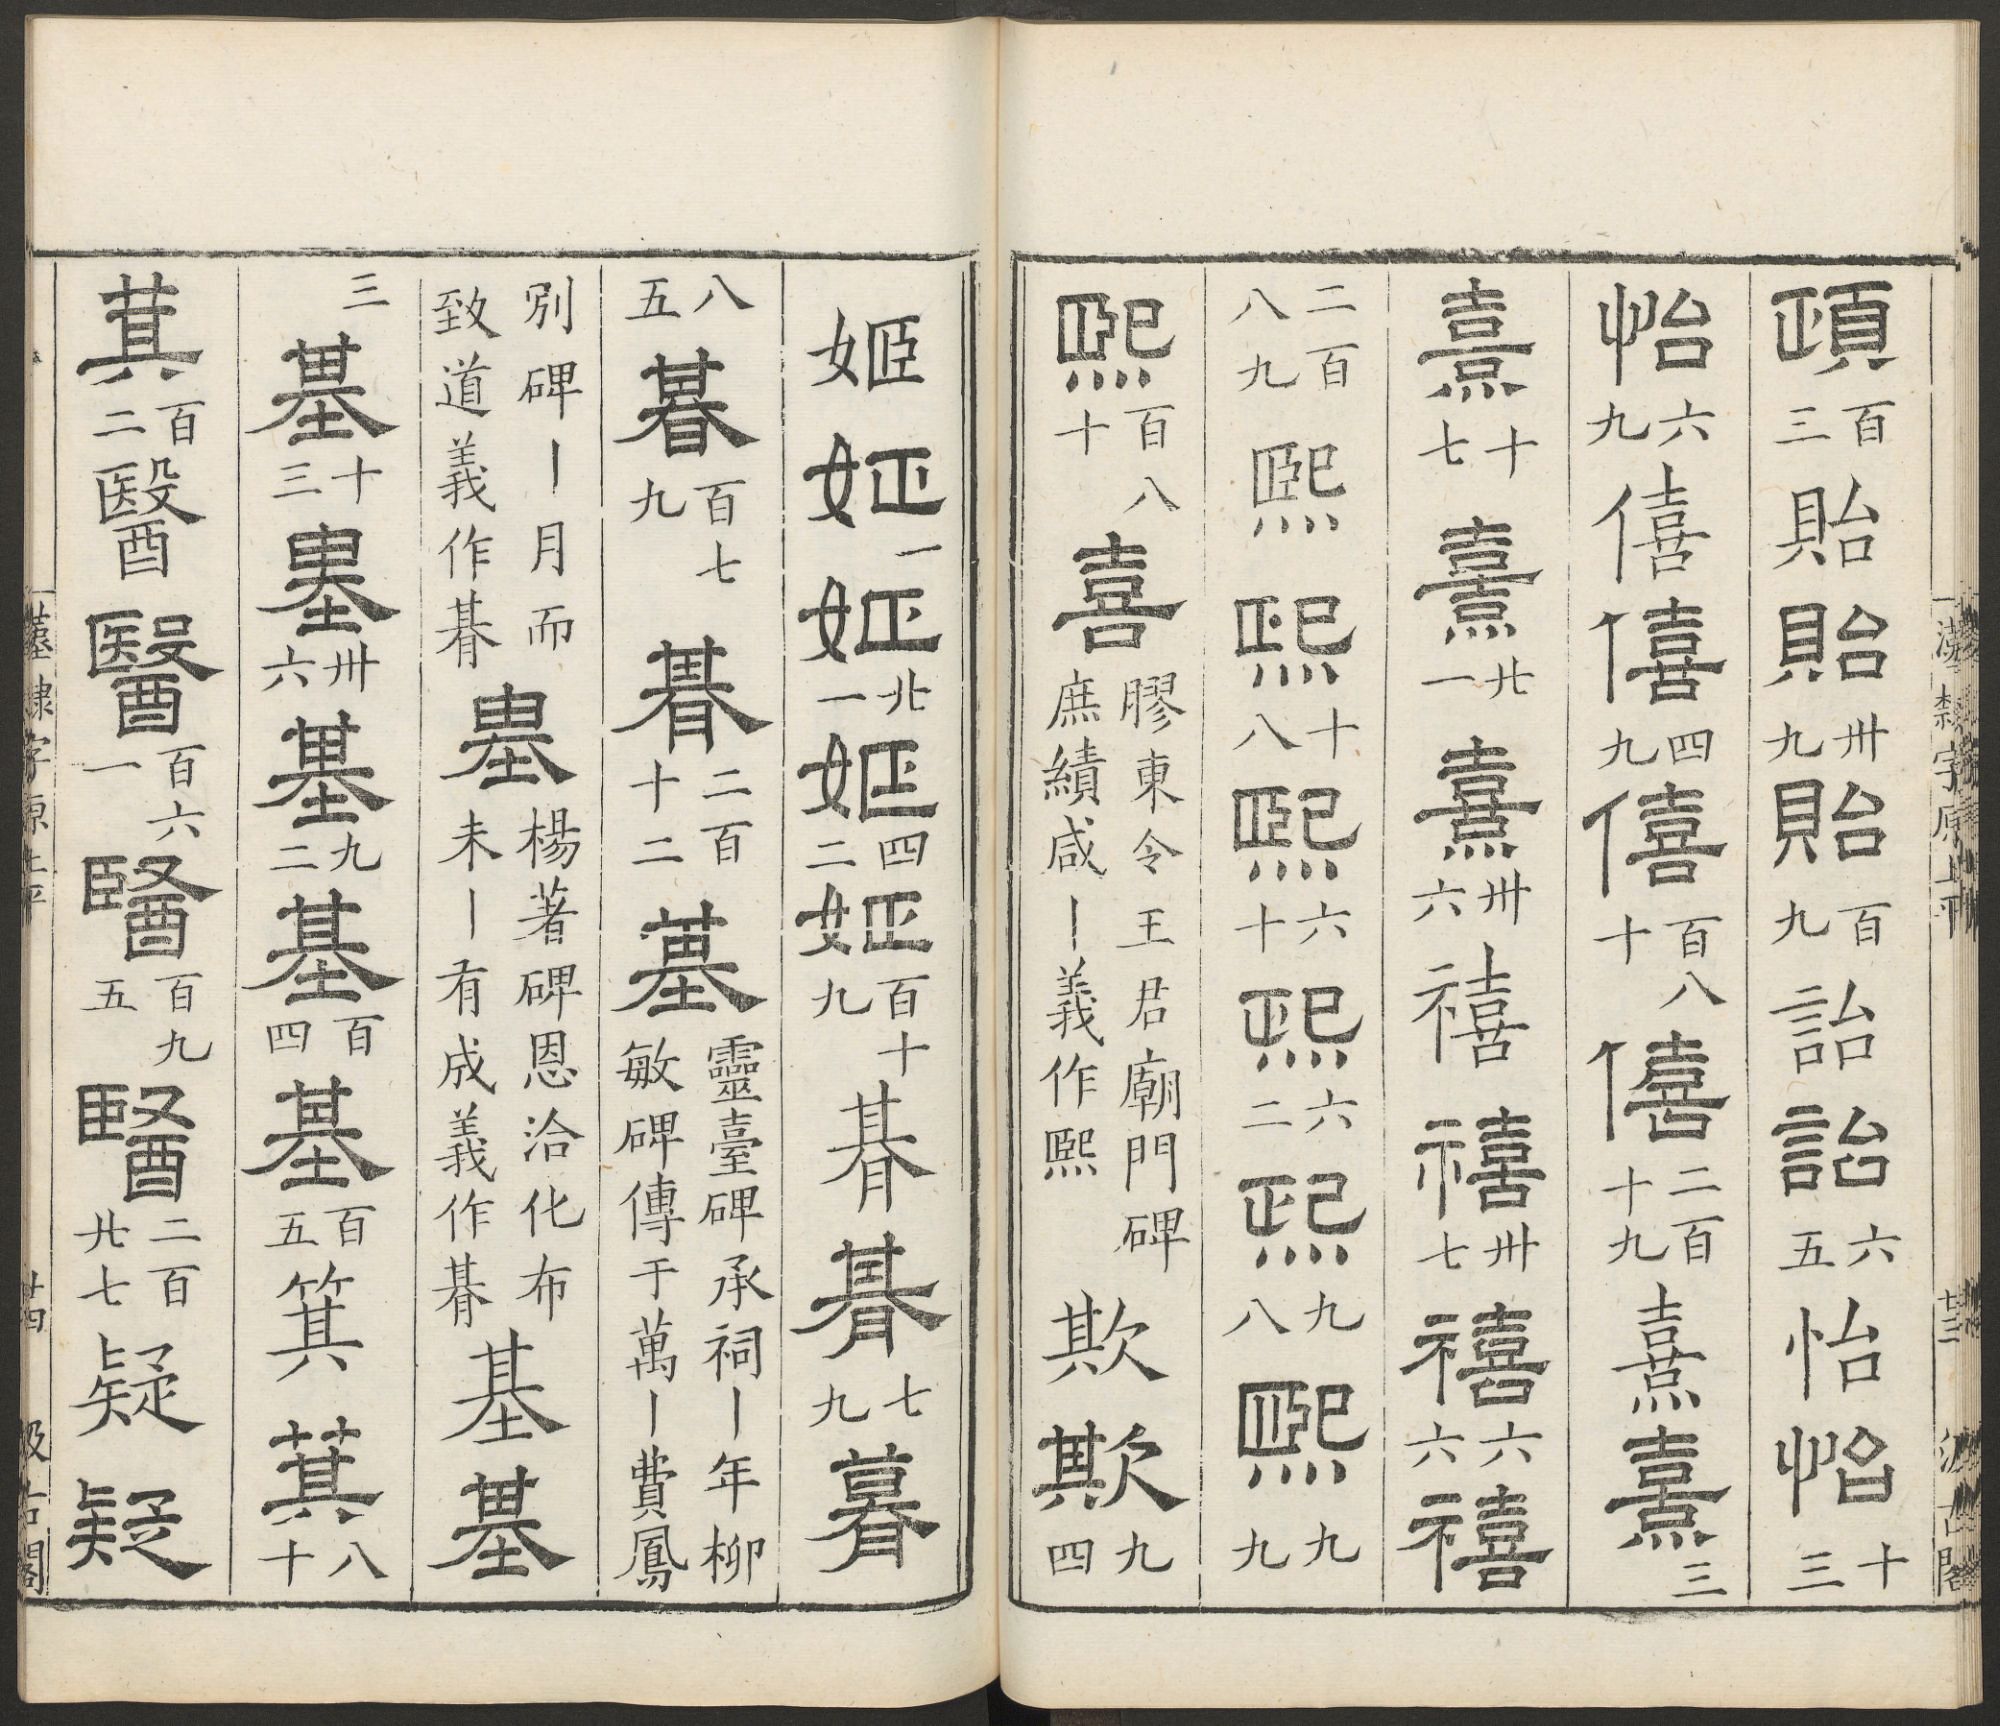 頤百三貽貽卅九貽百九詒詒六五怡怡十三
怡六九僖僖四九僖百八十僖二百十九熹熹三
熹十七熹廿一熹卅六禧禧卅七禧六六禧
二百八九熙熙十八熙六十熙六二熙九八熙九九
熙百八十喜膠東令王君廟門碑庶績咸丨義作熙欺欺九四
漢隸字原上平
廿三
汲古閣
姬姬一姬北一姬四二姬百十九朞朞七九朞
八五朞百七九朞二百十二基靈臺碑承祠丨年柳敏碑傳于萬丨費鳳
別碑丨月而致道義作朞基楊著碑恩洽化布未丨有成義作朞基基
三基十三基卅六基九二基百四基百五箕箕八十
箕百二醫醫百六一醫百九五醫二百廿七疑疑
漢隸字原上平
廿四
汲古閣